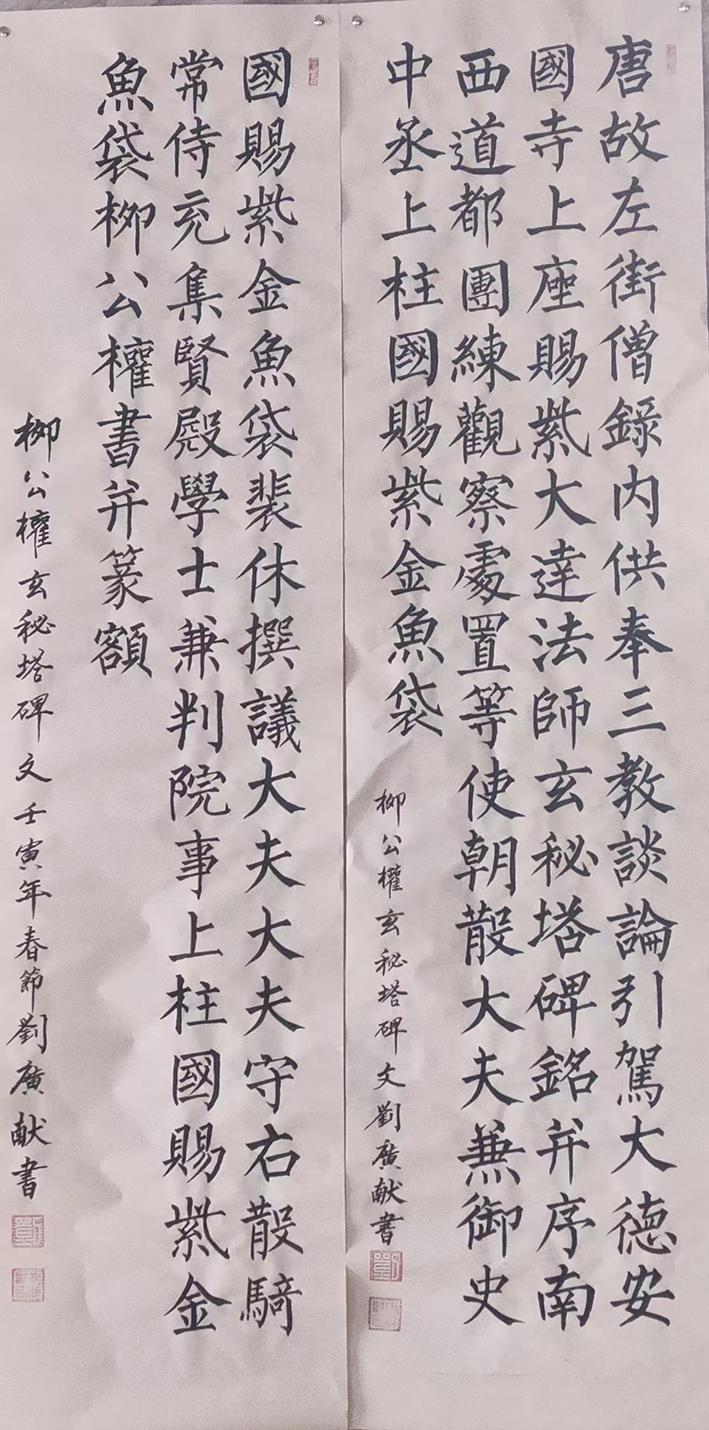 唐故左街僧錄内供奉三教談論引駕大德安
國寺上座賜紫大達法師玄秘塔碑銘并序南
西道都團練觀察處置等使朝散大夫兼御史
中丞上柱國賜紫金魚袋
柳公權玄秘塔碑文劉廣献書
國賜紫金魚袋裴休撰議大夫大夫守右散騎
常侍充集賢殿學士兼判院事上柱國賜紫金
魚袋柳公權書并篆額
柳公權玄秘塔碑文壬寅年春節劉廣献書